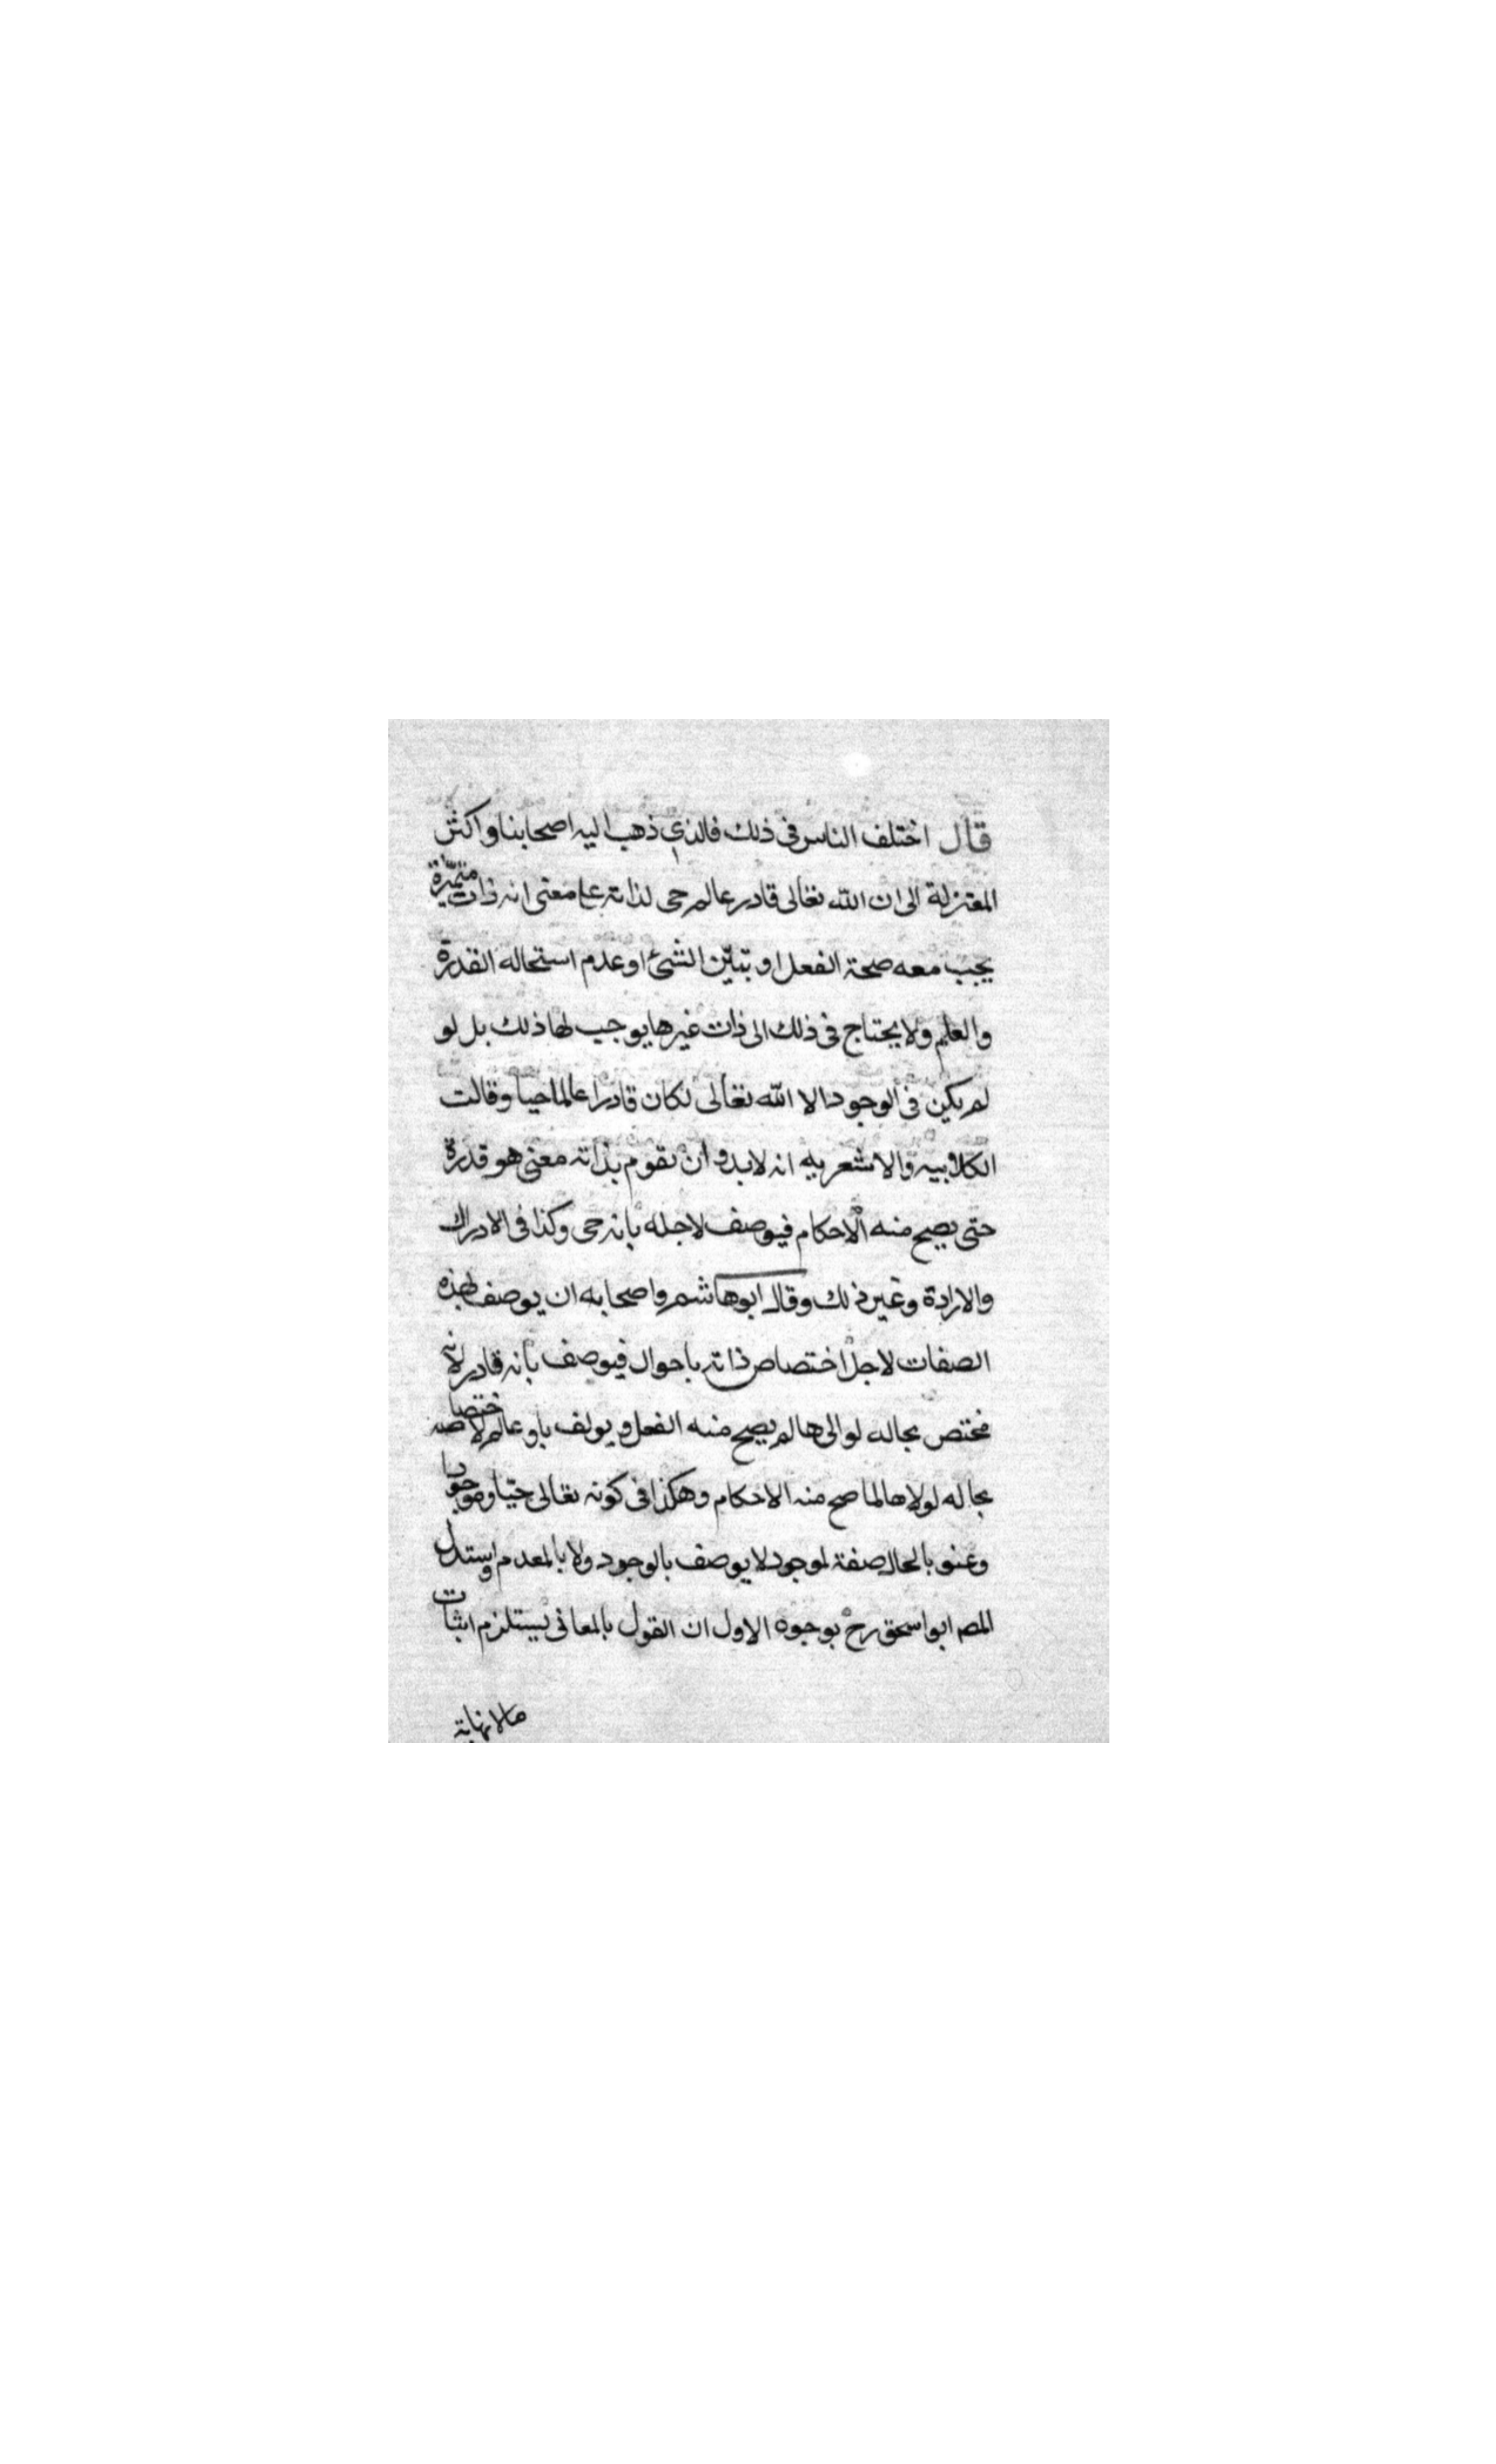 قال اختلف الناس فى ذلك فالذي ذهب اليه اصحابنا واكثر
المعتزلة الى ان الله تعالى قادر عالم حى لذاته على معنى انه ذات متميزة
يجب معه صحة الفعل او تبيّن الشئ او عدم استحاله القدرة
والعلم ولا يحتاج فى ذلك الى ذات غيرها يوجب لها ذلك بل لو
لم يكن فى الوجود الا الله تعالى لكان قادرا عالما حيا وقالت
الكلابيه والاشعريه انه لابد و ان تقوم بذاته معنى هو قدرة
حتى يصح منه الاحكام فيوصف لاجله بانه حى وكذا فى الادراك
والارادة وغير ذلك وقال ابو هاشم واصحابه ان يوصف بهذه
الصفات لاجل اختصاص ذاته باحوال فيوصف بانه قادر لانه
مختص بحاله لوالى ها لم يصح منه الفعل و يولف باو عالم لاختصاصه
بحاله لولاها لما صح منه الاحكام وهكذا فى كونه تعالى حيّا وموجودا
وعنو بالحال صفة لموجود لا يوصف بالوجود ولا بالمعدم واستدل
المص ابو اسحق رح بوجوه الاول ان القول بالمعانى يستلزم اثبات
مالانهاية